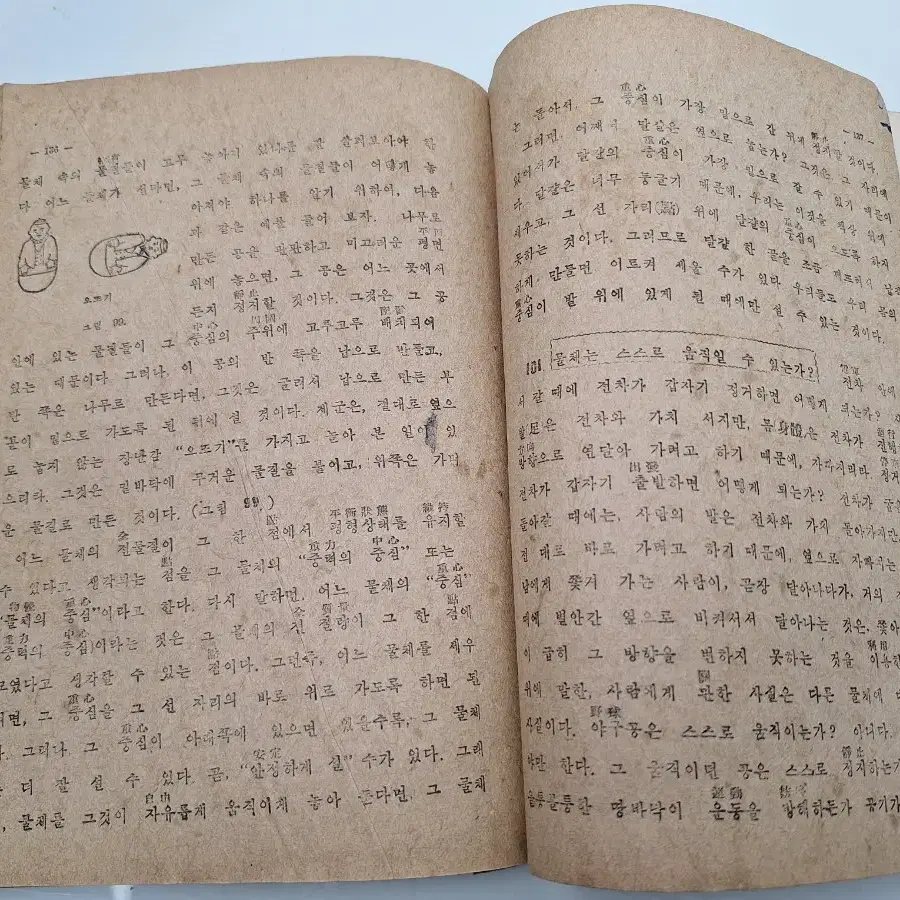 - 136 -
물체 속의 물질들이 고루 놓아져 있나를 잘 살펴보아야 한
다 어느 물체가 선다면, 그 물체 속의 물질들이 어떻게 놓
아져야 하나를 알기 위하여, 다음
과 같은 예를 들어 보자. 나무로
만든 공은 판판하고 미끄러운 평면
위에 놓으면, 그 공은 어느 곳에서
靜止
든지 정지할 것이다. 그것은 그 공
오뚜기
그림 99.
中心 周圍 配置
안에 있는 물질들이 그 중심의 주위에 고루고루 배치되어
있는 때문이다 그러나, 이 공의 반 쪽을 납으로 만들고,
반 쪽은 나무로 만든다면, 그것은 굴러서 납으로 만든 부
분이 밑으로 가도록 된 뒤에 설 것이다. 제군은, 절대로 옆으
로 눕지 않는 장난감 "오뚜기"를 가지고 놀아 본 일이 있
으리라. 그것은 밑바닥에 무거운 물질을 붙이고, 위쪽은 가벼
운 물질로 만든 것이다. (그림 99.)
全 點 平衡狀態 維持
어느 물체의 전물질이 그 한 점에서 평형상태를 유지할
點 重力 中心
수 있다고 생각되는 점을 그 물체의 "중력의 중심" 또는
物體 重心 重心
"물체의 중심"이라고 한다. 다시 말하면, 어느 물체의 "중심"
重力 中心 全 質量 點
(중력의 중심)이라는 것은 그 물체의 전 질량이 그 한 점에
點
모였다고 생각할 수 있는 점이다. 그런즉, 어느 물체를 세우
重心
려면, 그 중심을 그 선 자리의 바로 위로 가도록 하면 된
重心
다. 그러나, 그 중심이 아래쪽에 있으면 있을수록, 그 물체
安定
는 더 잘 설 수가 있다. 곧, "안정하게 설" 수가 있다. 그래
自由
서, 물체를 그것이 자유롭게 움직이게 놓아 둔다면, 그 물체
- 137 -
重心
는 돌아서, 그 중심이 가장 밑으로 간 뒤에 정지할 것이다.
그러면, 어째서 달걀은 옆으로 눕는가? 그것은 그 자리에
重心
있어서가 달걀의 중심이 가장 밑으로 갈 수 있기 때문이
다. 달걀은 너무 둥글기 때문에, 우리는 이것을 책상 위에
세우고, 그 선 자리(點) 위에 달걀의 중심이 오도록 하지
못하는 것이다. 그러므로 달걀 한 끝을 조금 깨뜨려서
하게 만들면 이르켜 세울 수가 있다 우리들도 우리 몸의
重心
중심이 발 위에 있게 될 때에만 설 수 있는 것이다.
101 물체는 스스로 움직일 수 있는가?
서 갈 때에 전차가 갑자기 정거하면 어떻게 되는가? 전차 안에
발足은 전차와 가치 서지만, 몸身體은 전차가 진행
方向
방향으로 연달아 가려고 하기 때문에, 자빠지리라
出發
전차가 갑자기 출발하면 어떻게 되는가? 전차가 굽은
돌아갈 때에는, 사람의 발은 전차와 가치 돌아가지만,
전 대로 바로 가려고 하기 때문에, 옆으로 자빠지는
남에게 쫓겨 가는 사람이, 곧장 달아나다가, 거의
때에 별안간 옆으로 비켜서서 달아나는 것은, 쫓아
利用
이 급히 그 방향을 변하지 못하는 것을 이용한
關
위에 말한, 사람에게 관한 사실은 다른 물체에
野球
사실이다. 야구공은 스스로 움직이는가? 아니다.
靜止
야만 한다. 그 움직이던 공은 스스로 정지하는가?
運動 妨害
울퉁불퉁한 땅바닥이 운동을 방해하든가 공기가